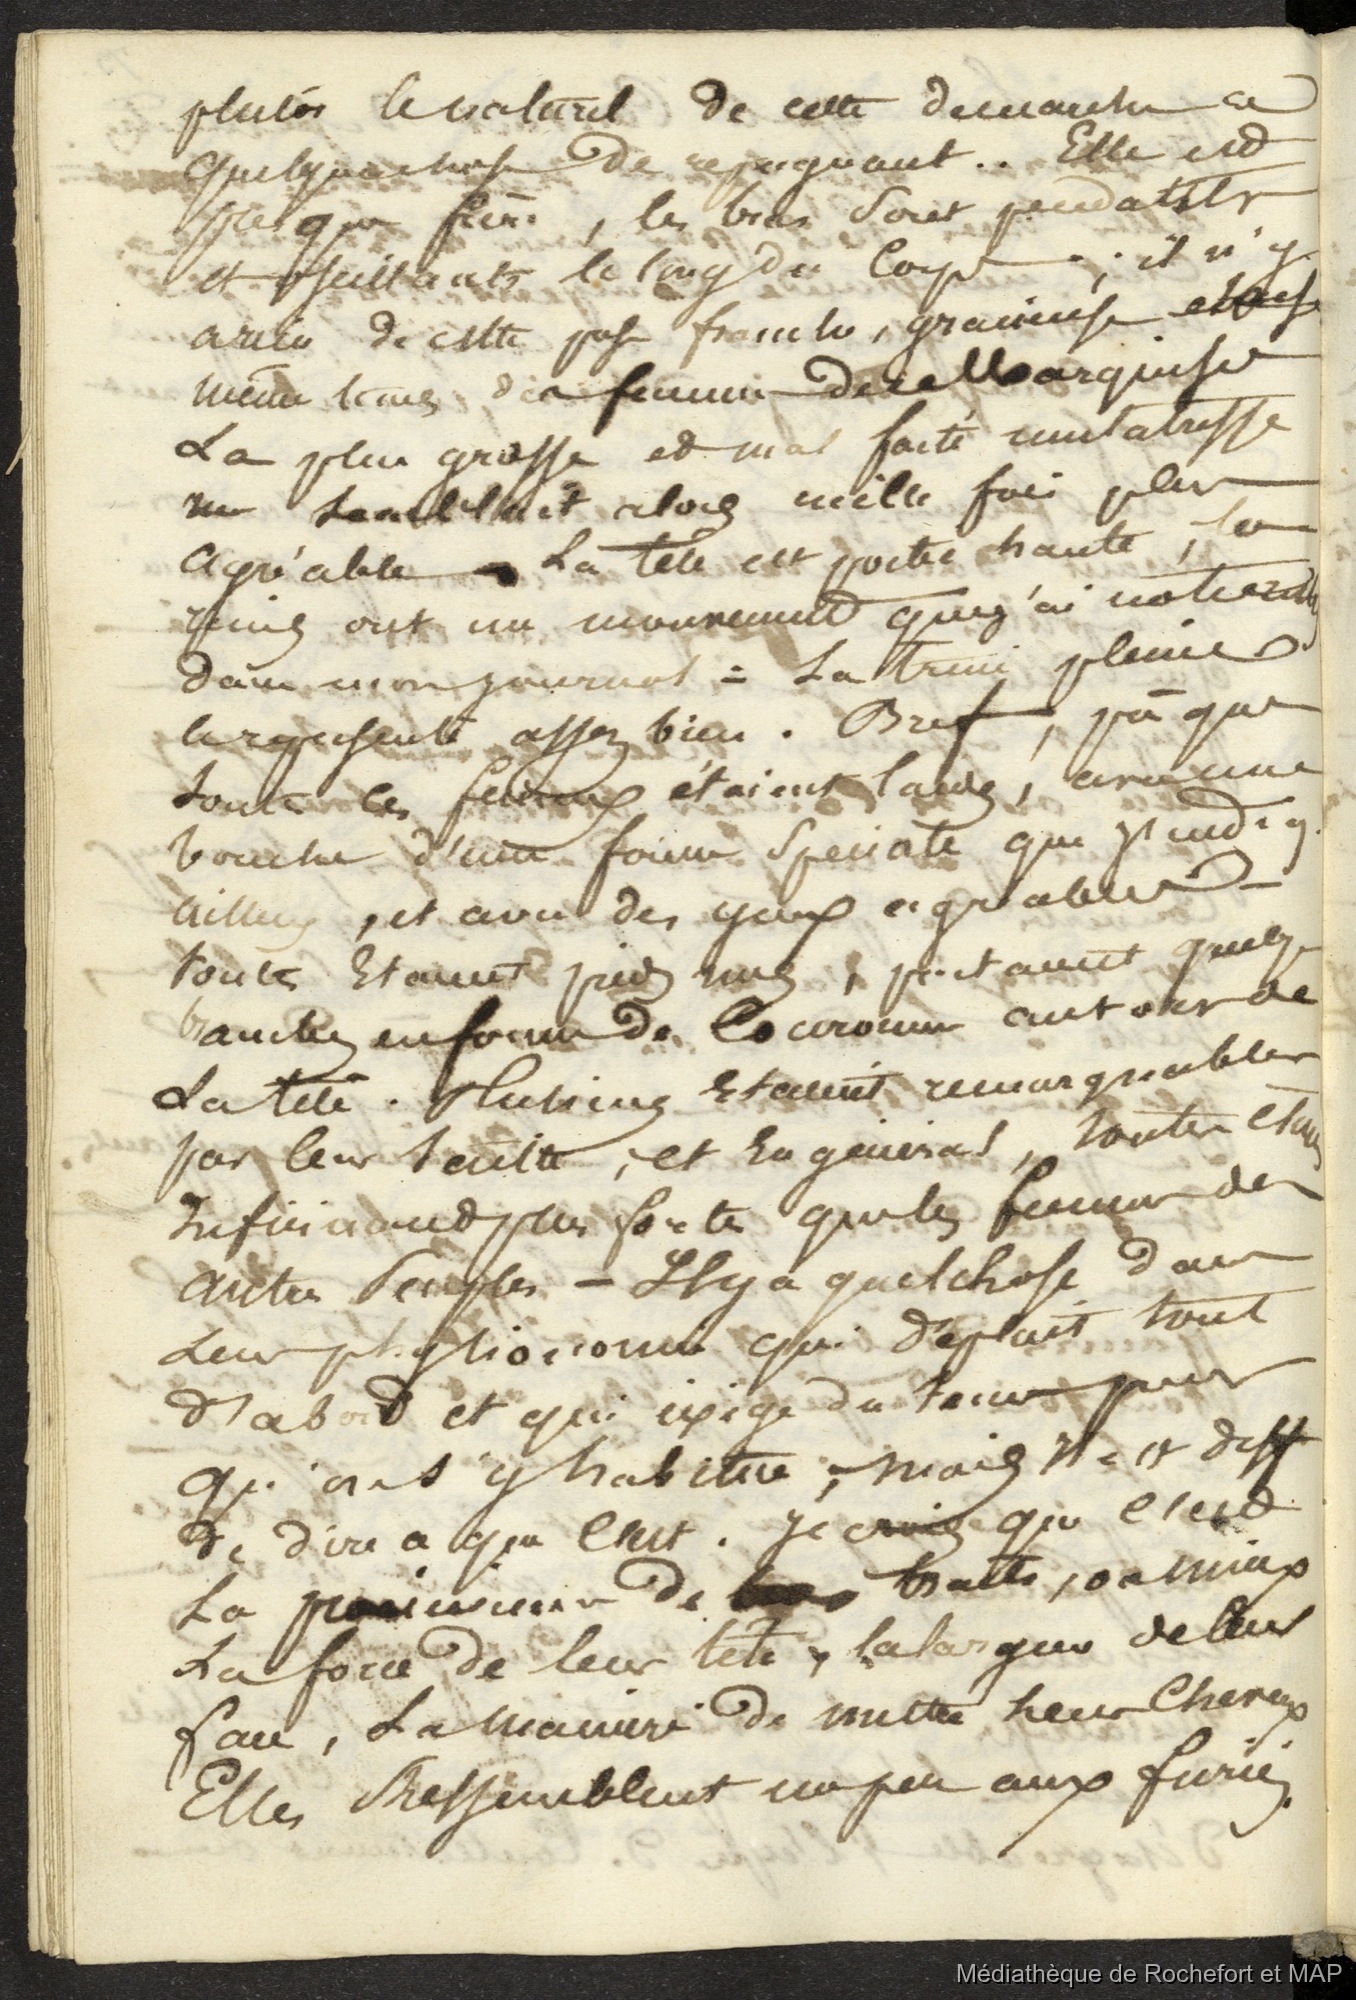 plutôt le naturel de cette demarche a
quelque chose de repugnant .. Elle est
presque fière, les bras sont pendants
et oscillants le long du Corps ; il n'y
a rien de cette pose franche, gracieuse et
même temps des femmes des Marquises
La plus grosse et mal faite mulatresse
me semblait alors mille fois plus
agréable - La tête est portée haute, les
reins ont un mouvement que j'ai noté
dans mon journal = La
 assez bien . Bref, que
toutes ces femmes étaient laides, avec une
bouche d'une forme speciale que
ailleurs, et avec des yeux agréables -
toutes Etaient pieds nus, portaient quelq
branches en forme de Couronne autour de
La tête . Plusieurs Etaient remarquables
par leur taille, et En général, toutes étaient
Infiniment plus fortes que les femmes des
autres Peuples - Il y a quelchose dans
Leur physionomie qui déplait tout
d'abord et qui exige du tems pour
qu'on s'y habitue ; mais il est diff
de dire a que C'est . Je crois que c'est
La de traits, ou mieux
La force de leur tête, la largeur de leur
face, La manière de mettre leurs Cheveux
Elles Ressemblent un peu aux furies.
Médiathèque de Rochefort et MAP